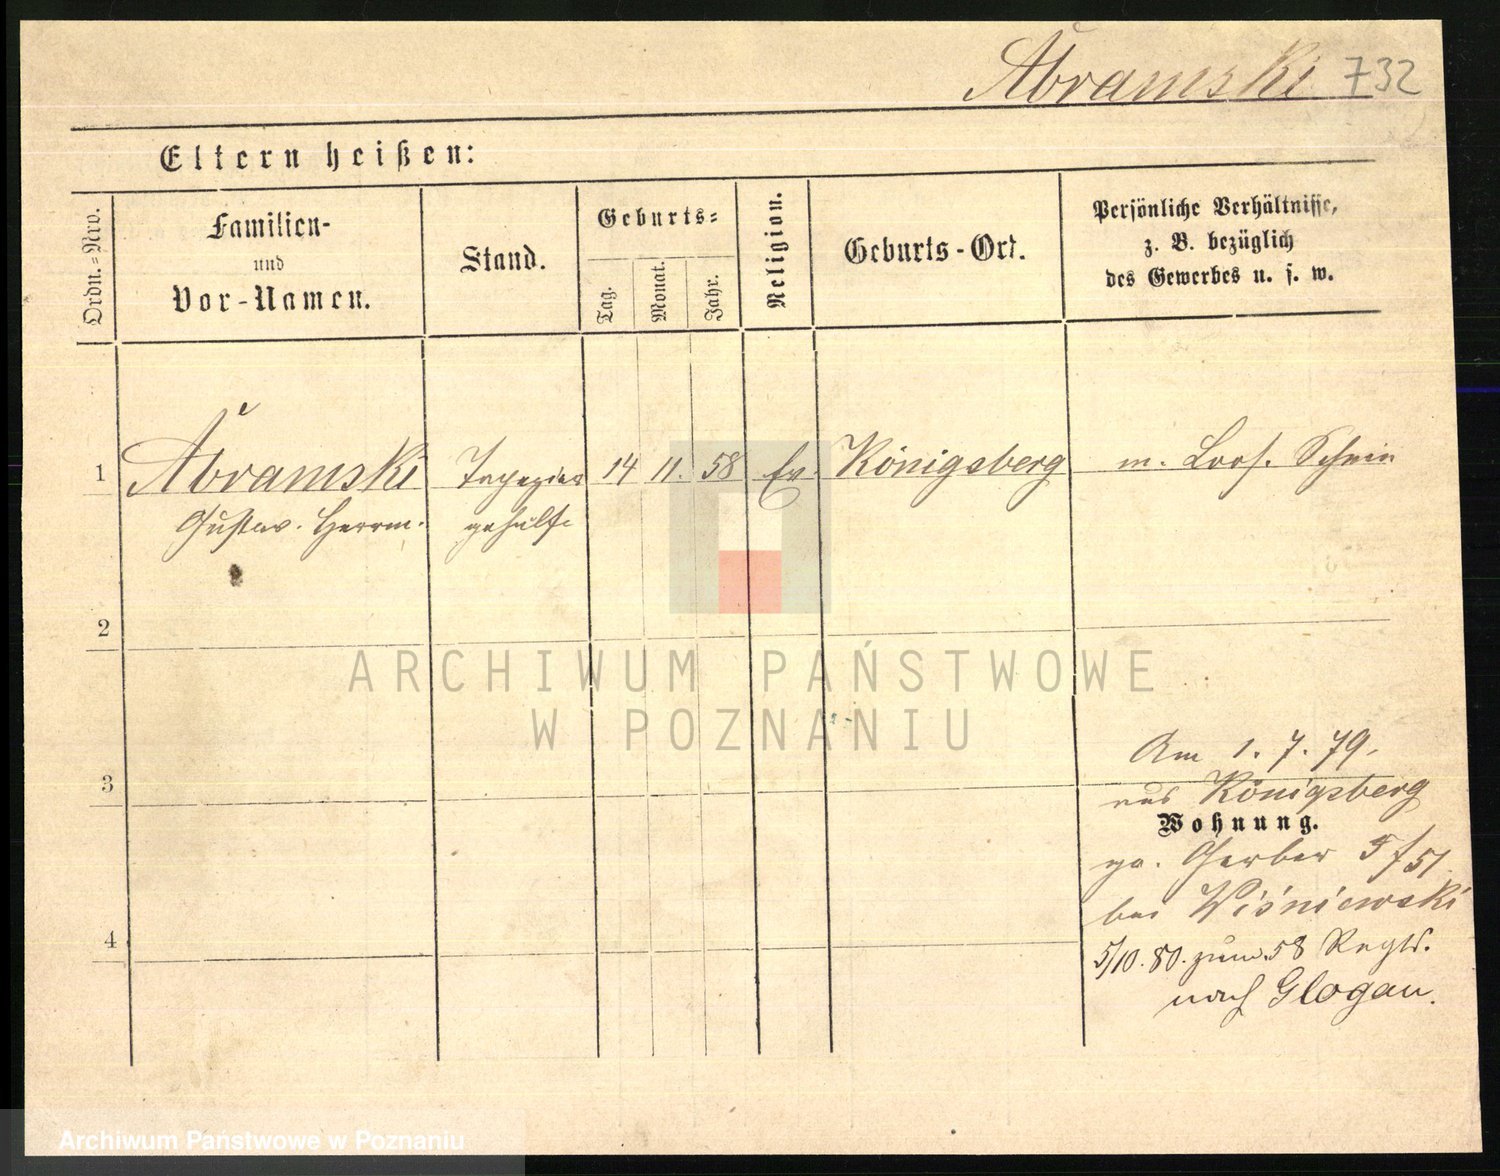 Abramski 732
Eltern heißen:
Ordn.=Nro.
Familien-
und
Vor-Namen.
Stand.
Geburts=
Tag.
Monat.
Jahr.
Religion.
Geburts-Ort.
Persönliche Verhältnisse,
z. B. bezüglich
des Gewerbes u. s. w.
1 Abramski Tapezier 14 11. 58 Ev. Königsberg m. Loos. Schein
Gustav. Herrm. gehülfe
2
3
4
Am 1. 7. 79.
aus Königsberg
Wohnung.
Gerber 5/51
bei Wiśniewski
5/10. 80. zum 58 Regts.
nach Glogau.
ARCHIWUM PAŃSTWOWE
W POZNANIU
Archiwum Państwowe w Poznaniu